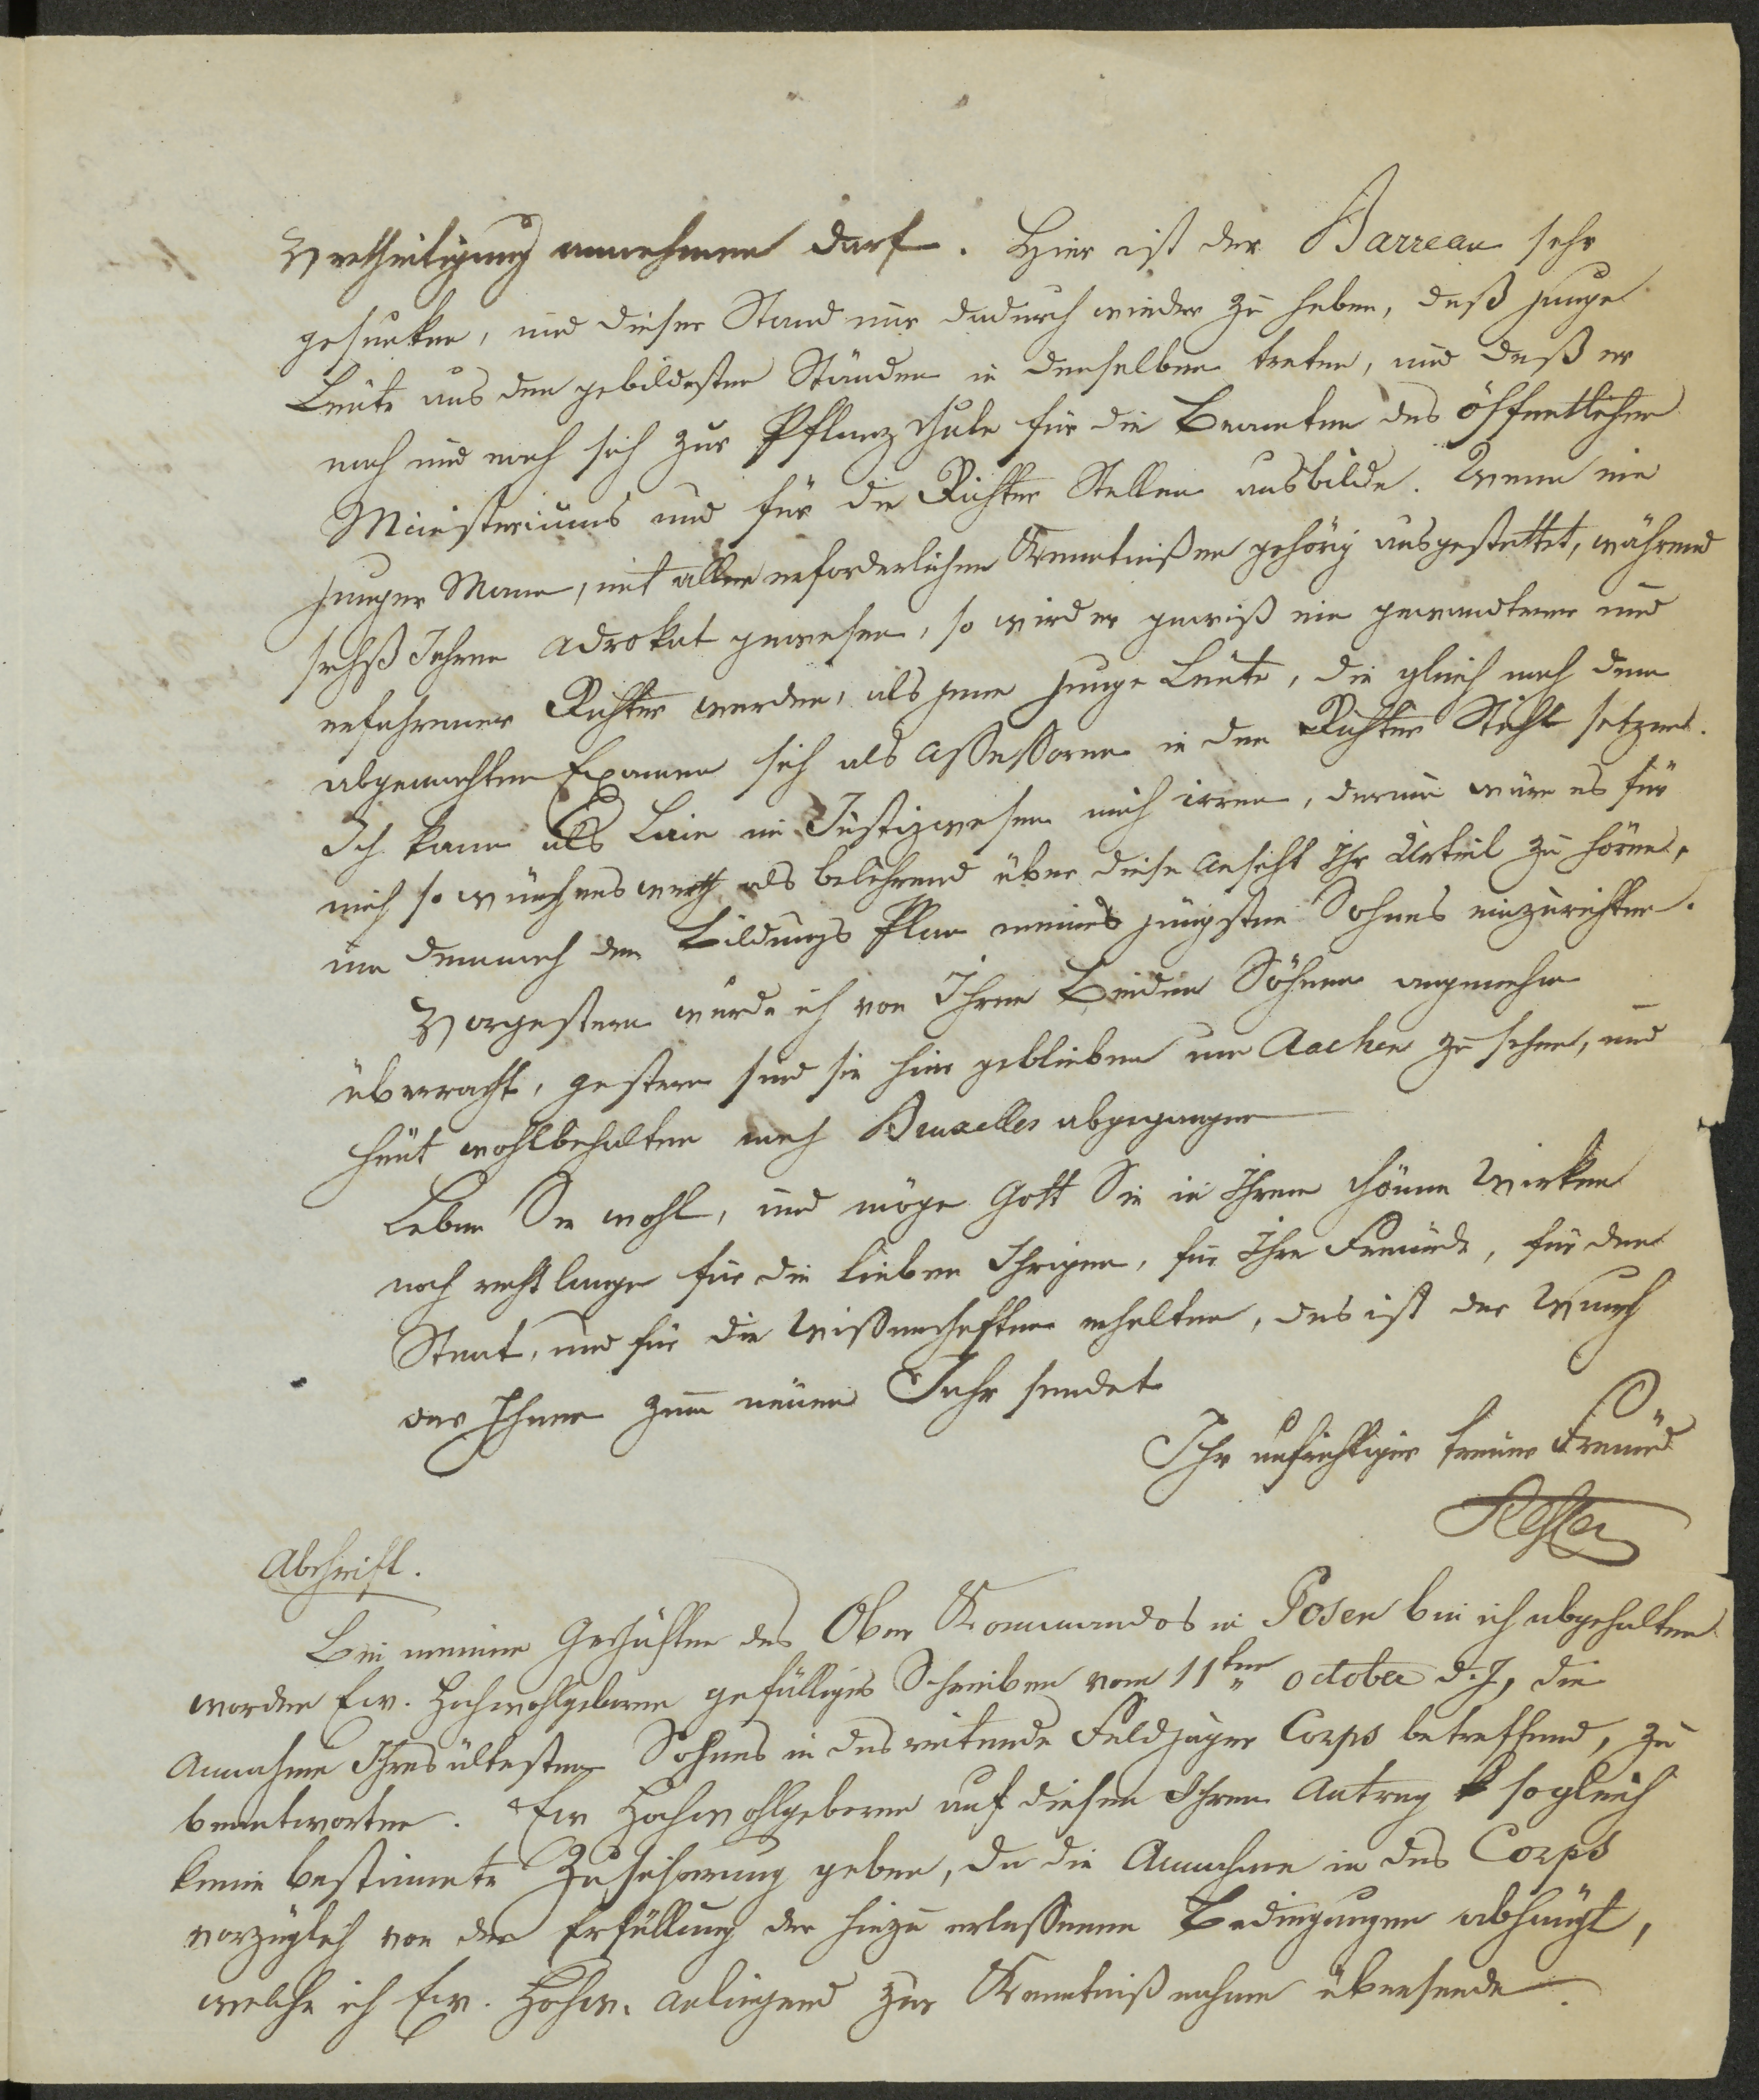 Vertheitigung annehmen darf. Hier ist der Barreau sehr
gesunken, und dieser Stand nur dadurch wieder zu heben, daß junge
Leute aus den gebildesten Ständen in denselben treten, und daß er
nach und nach sich zur Pflanzschule für die Beamten des öffentlichen
Ministeriums und für die Richter Stellen ausbilde. Wenn ein
junger Mann, mit allen erforderlichen Kenntnißen gehörig ausgestattet, während
sechß Jahren Advokat gewesen, so wird er gewiß ein gewandterer und
erfahrener Richter werden, als jene junge Leute, die gleich nach dem
abgemachten Examen sich als Assessoren in den Richter Stuhl setzen.
Ich kann als Laie im Justizwesen mich irren, darum wäre es für
mich so wünschenswerth als belehrend über diese Ansicht Ihr Urteil zu hören,
um demnach den Bildungs Plan meines jüngsten Sohnes einzurichten.
Vorgestern wurde ich von Ihren Beiden Söhnen angenehm
überracht, gestern sind sie hier geblieben um Aachen zu sehen, und
heut wohlbehalten nach Bruxelles abgegangen
Leben Sie wohl, und möge Gott Sie in Ihrem schönen Wirken
noch recht lange für die lieben Ihrigen, für Ihre Freunde, für den
Staat, und für die Wißenschaften erhalten, das ist der Wunsch
den Ihnen zum neuen Jahr sendet
Ihr aufrichtiger treuer Freund
Reffer
Abschrift.
Bei meinen Geschäften des Ober Kommandos in Posen bin ich abgehalten
worden Ew. Hochwohlgeboren gefälliges Schreiben vom 11ten October d. J, die
Annahme Ihres ältesten Sohnes in das reitende Feldjäger Corps betreffend, zu
beantworten. Ew Hochwohlgeboren auf diesen Ihren Antrag sogleich
keine bestimmte Zusicherung geben, da die Annahme in das Corps
vorzüglich von der Erfüllung der hiezu erlassenen Bedingungen abhängt,
welche ich Ew. Hochw. anliegend zur Kenntnißnahme übersende.